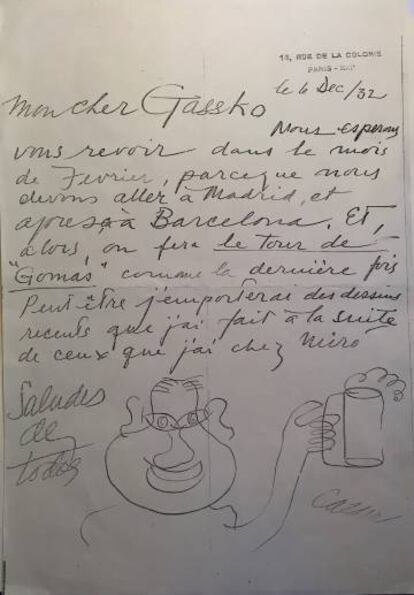 14, RUE DE LA COLONIE
PARIS - XIIIe
le 6 Dec/32
Mon cher Gassko
Nous esperons
vous revoir dans le mois
de Fevrier, parceque nous
devons aller à Madrid, et
apres à Barcelona. Et,
alors, on fera le tour de
"Gomas" comme la dernière fois
Peut être j'emporterai des dessins
recents que j'ai fait à la suite
de ceux que j'ai chez Miro
Saludos
de
todos